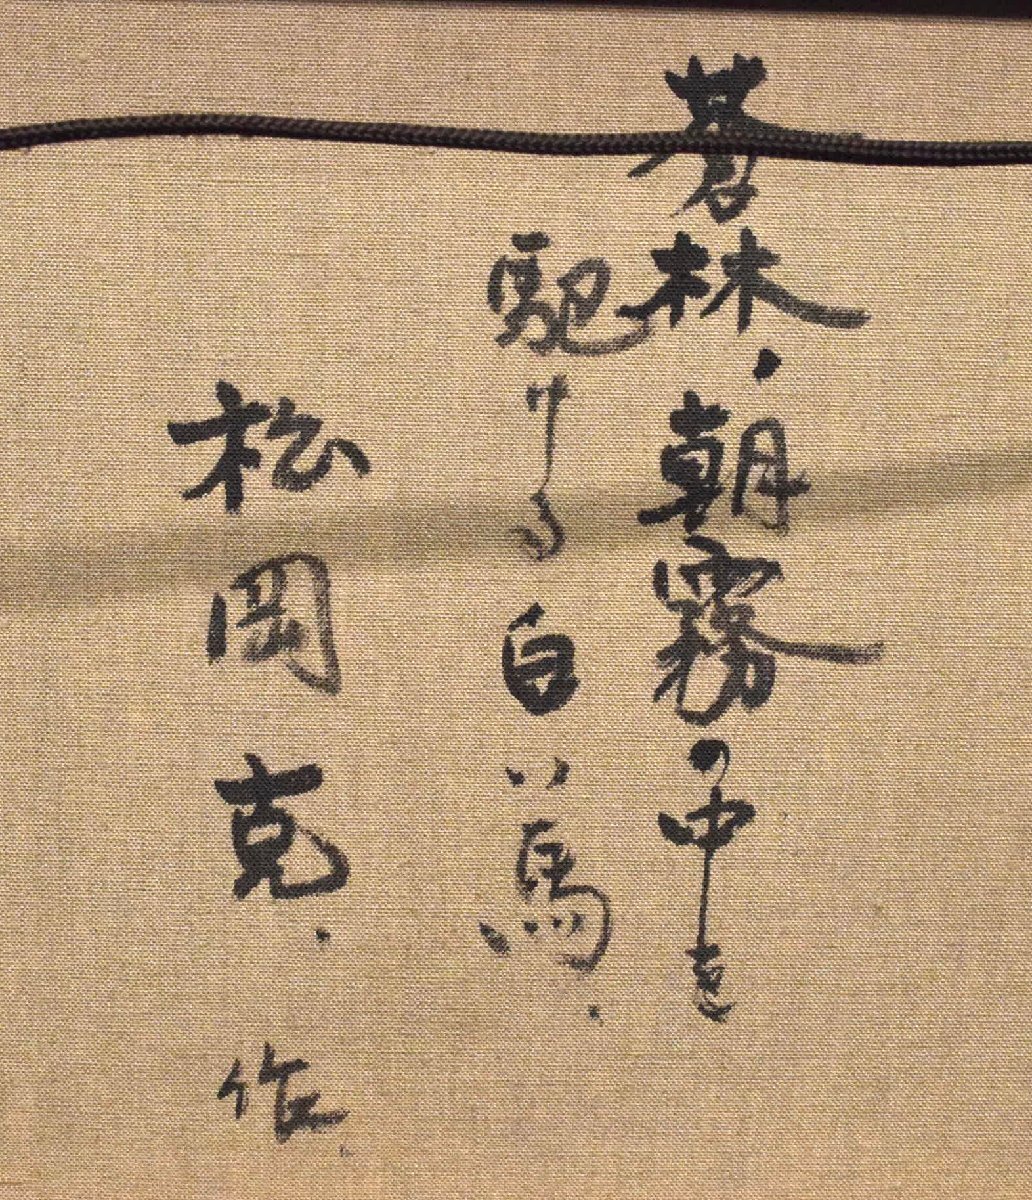 蒼林、朝霧の中を
駈ける白い馬.
松岡克.作